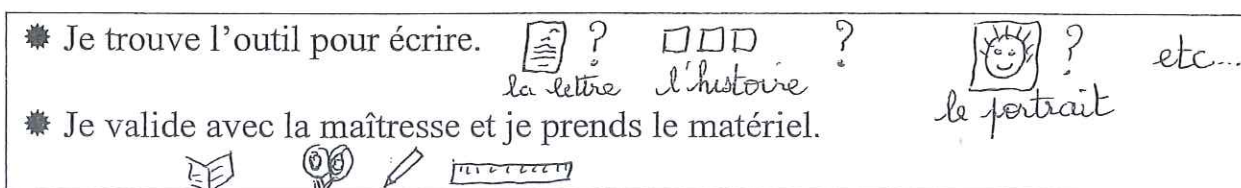 ✹ Je trouve l'outil pour écrire. ? ? ? etc...
la lettre l'histoire le portrait
✹ Je valide avec la maîtresse et je prends le matériel.